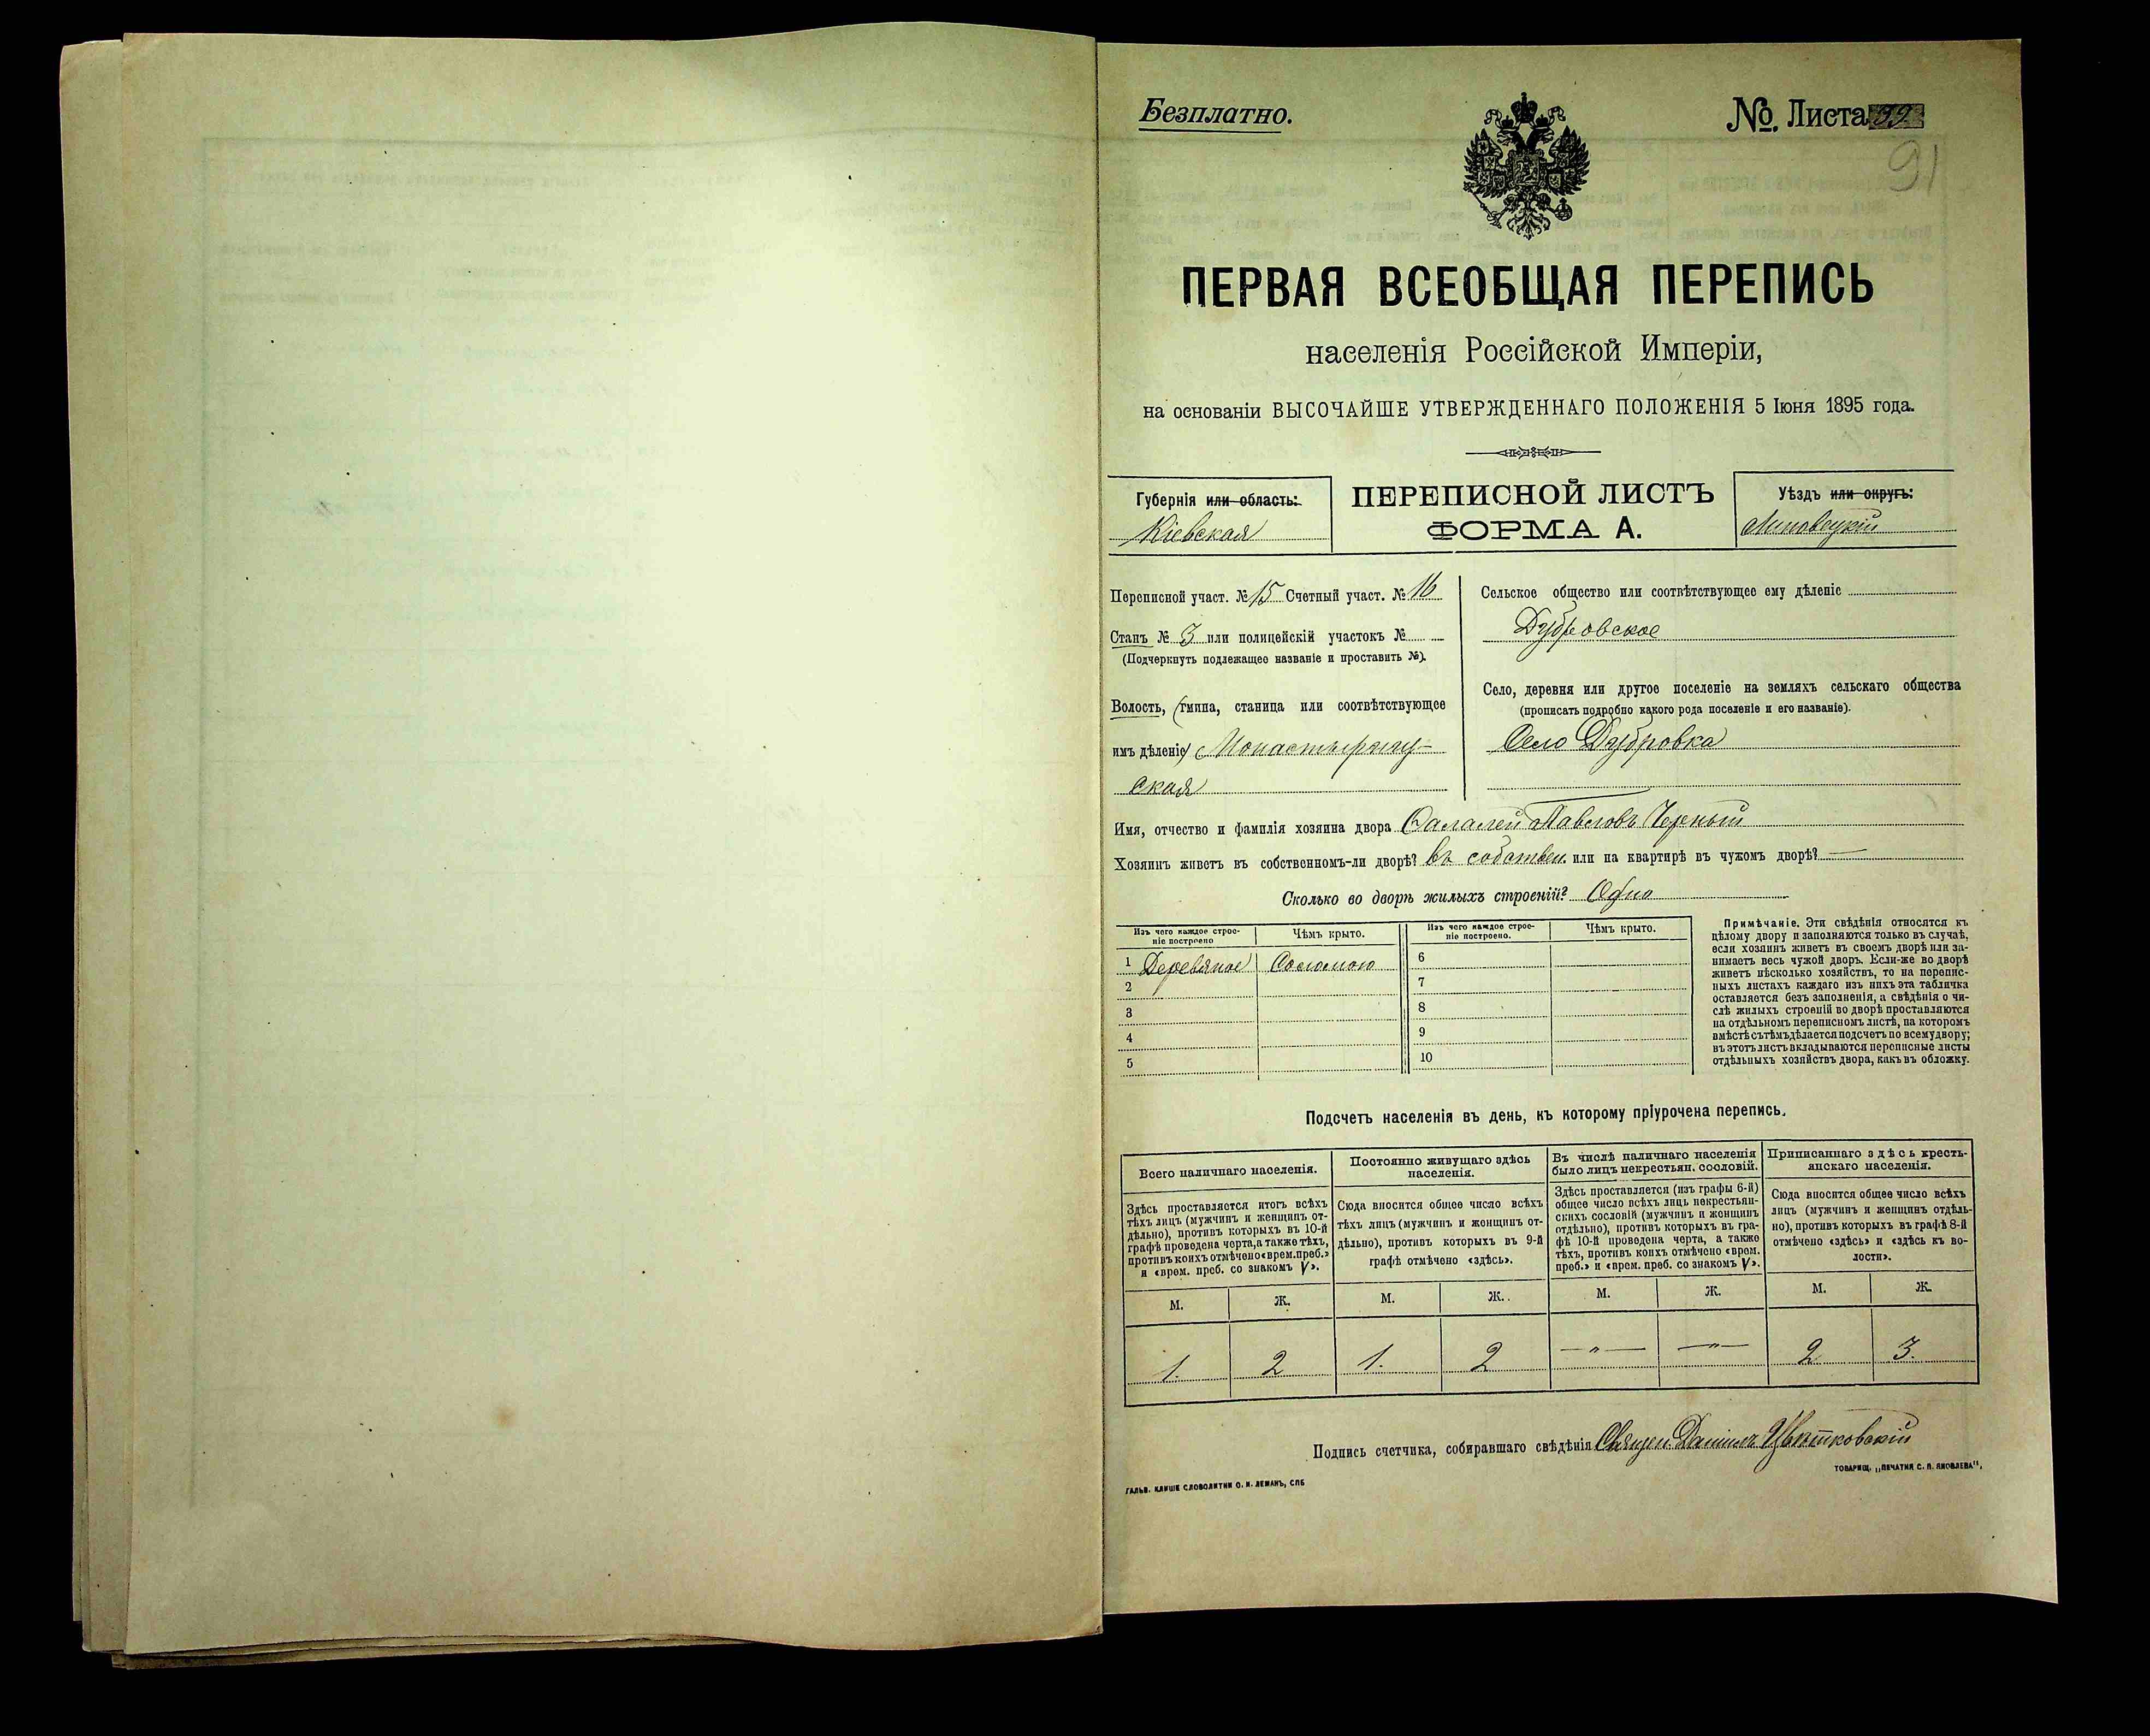 Безплатно.
№. Листа 99
91
ПЕРВАЯ ВСЕОБЩАЯ ПЕРЕПИСЬ
населенія Россійской Имперіи,
на основаніи ВЫСОЧАЙШЕ УТВЕРЖДЕННАГО ПОЛОЖЕНІЯ 5 Іюня 1895 года.
Губернія или область:
Кіевская
ПЕРЕПИСНОЙ ЛИСТЪ
ФОРМА А.
Уѣздъ или округъ:
Липовецкій
Переписной участ. № 15 Счетный участ. № 16
Станъ № 3 или полицейскій участокъ №
(Подчеркнуть подлежащее названіе и проставить №).
Волость, (гмина, станица или соотвѣтствующее
имъ дѣленіе) Монастырищ-
ская
Сельское общество или соотвѣтствующее ему дѣленіе
Дубровское
Село, деревня или другое поселеніе на земляхъ сельскаго общества
(прописать подробно какого рода поселеніе и его названіе).
Село Дубровка
Имя, отчество и фамилія хозяина двора Фалалей Павловъ Черный
Хозяинъ живетъ въ собственномъ-ли дворѣ? въ собствен. или на квартирѣ въ чужомъ дворѣ? —
Сколько во дворѣ жилыхъ строеній? Одно
Изъ чего каждое строе-
ніе построено
Чѣмъ крыто.
Изъ чего каждое строе-
ніе построено.
Чѣмъ крыто.
1 Деревяное Соломою 6
2 7
3 8
4 9
5 10
Примѣчаніе. Эти свѣдѣнія относятся къ
цѣлому двору и заполняются только въ случаѣ,
если хозяинъ живетъ въ своемъ дворѣ или за-
нимаетъ весь чужой дворъ. Если-же во дворѣ
живетъ нѣсколько хозяйствъ, то на перепис-
ныхъ листахъ каждаго изъ нихъ эта табличка
оставляется безъ заполненія, а свѣдѣнія о чи-
слѣ жилыхъ строеній во дворѣ проставляются
на отдѣльномъ переписномъ листѣ, на которомъ
вмѣстѣ съ тѣмъ дѣлается подсчетъ по всему двору;
въ этотъ листъ вкладываются переписные листы
отдѣльныхъ хозяйствъ двора, какъ въ обложку.
Подсчетъ населенія въ день, къ которому пріурочена перепись.
Всего наличнаго населенія.
Здѣсь проставляется итогъ всѣхъ
тѣхъ лицъ (мужчинъ и женщинъ от-
дѣльно), противъ которыхъ въ 10-й
графѣ проведена черта, а также тѣхъ,
противъ коихъ отмѣчено «врем. преб.»
и «врем. преб. со знакомъ V».
Постоянно живущаго здѣсь
населенія.
Сюда вносится общее число всѣхъ
тѣхъ лицъ (мужчинъ и женщинъ от-
дѣльно), противъ которыхъ въ 9-й
графѣ отмѣчено «здѣсь».
Въ числѣ наличнаго населенія
было лицъ некрестьян. сословій.
Здѣсь проставляется (изъ графы 6-й)
общее число всѣхъ лицъ некрестьян-
скихъ сословій (мужчинъ и женщинъ
отдѣльно), противъ которыхъ въ гра-
фѣ 10-й проведена черта, а также
тѣхъ, противъ коихъ отмѣчено «врем.
преб.» и «врем. преб. со знакомъ V».
Приписаннаго здѣсь кресть-
янскаго населенія.
Сюда вносится общее число всѣхъ
лицъ (мужчинъ и женщинъ отдѣль-
но), противъ которыхъ въ графѣ 8-й
отмѣчено «здѣсь» и «здѣсь къ во-
лости».
М. Ж. М. Ж. М. Ж. М. Ж.
1. 2 1. 2 —"— —"— 2 3.
Подпись счетчика, собиравшаго свѣдѣнія Священ. Даніилъ Цвѣтковскій
ГАЛЬВ. КЛИШЕ СЛОВОЛИТНИ О. И. ЛЕМАНЪ, СПБ
ТОВАРИЩ. „ПЕЧАТНЯ С. П. ЯКОВЛЕВА“,